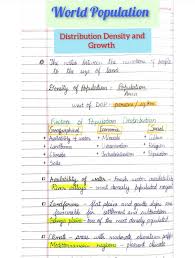 World Population
Distribution Density and
Growth
The ratio between the numbers of people
to the size of land
Density of Population = Population
Area
unit of DOP = persons / sq km
Factors of Population Distribution
Geographical Economic Social
Availability of water Minerals
Landforms Urbanization
Climate Industrialization
Soils
Availability of water - Fresh water availability
River valleys - most densely populated
Landforms - flat plains and gentle slopes are
favourable for settlement and cultivation
Ganga plains - one of the most densely populated
Climate - areas with moderate climate
Mediterranean regions - pleasant climate